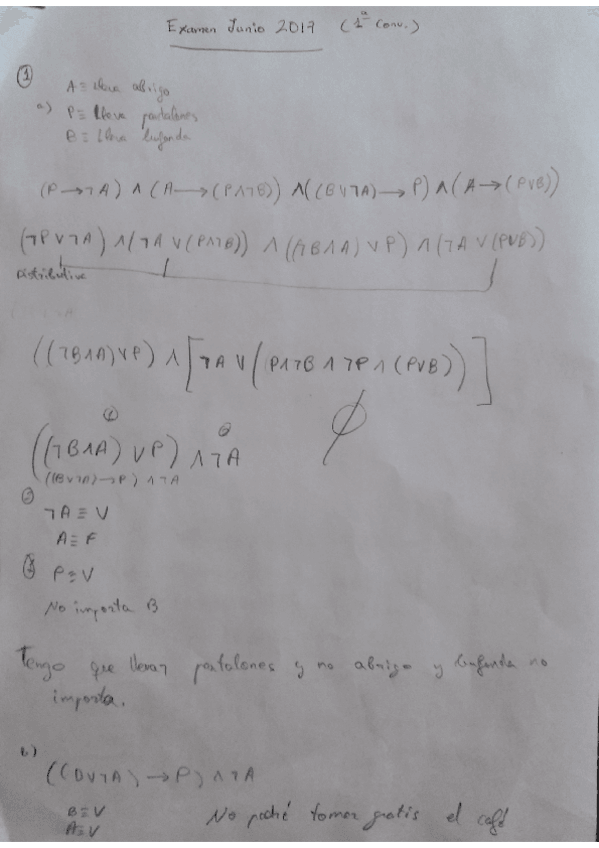 Examen Junio 2017 (1ª Conv.)
①
A ≡ lleva abrigo
a) P ≡ lleva pantalones
B ≡ lleva bufanda
(P → ¬A) ∧ (A → (P∧¬B)) ∧ ((B∨¬A) → P) ∧ (A → (P∨B))
(¬P∨¬A) ∧ (¬A ∨ (P∧¬B)) ∧ ((¬B∧A) ∨ P) ∧ (¬A ∨ (P∨B))
Distributiva
((¬B∧A)∨P) ∧ [¬A ∨ (P∧¬B ∧ ¬P ∧ (P∨B))]
∅
((¬B∧A) ∨ P) ∧ ¬A
((B∨¬A) → P) ∧ ¬A
¬A ≡ V
A ≡ F
P ≡ V
No importa B
Tengo que llevar pantalones y no abrigo y bufanda no
importa.
b)
((B∨¬A) → P) ∧ ¬A
B ≡ V
A ≡ V No podré tomar gratis el café